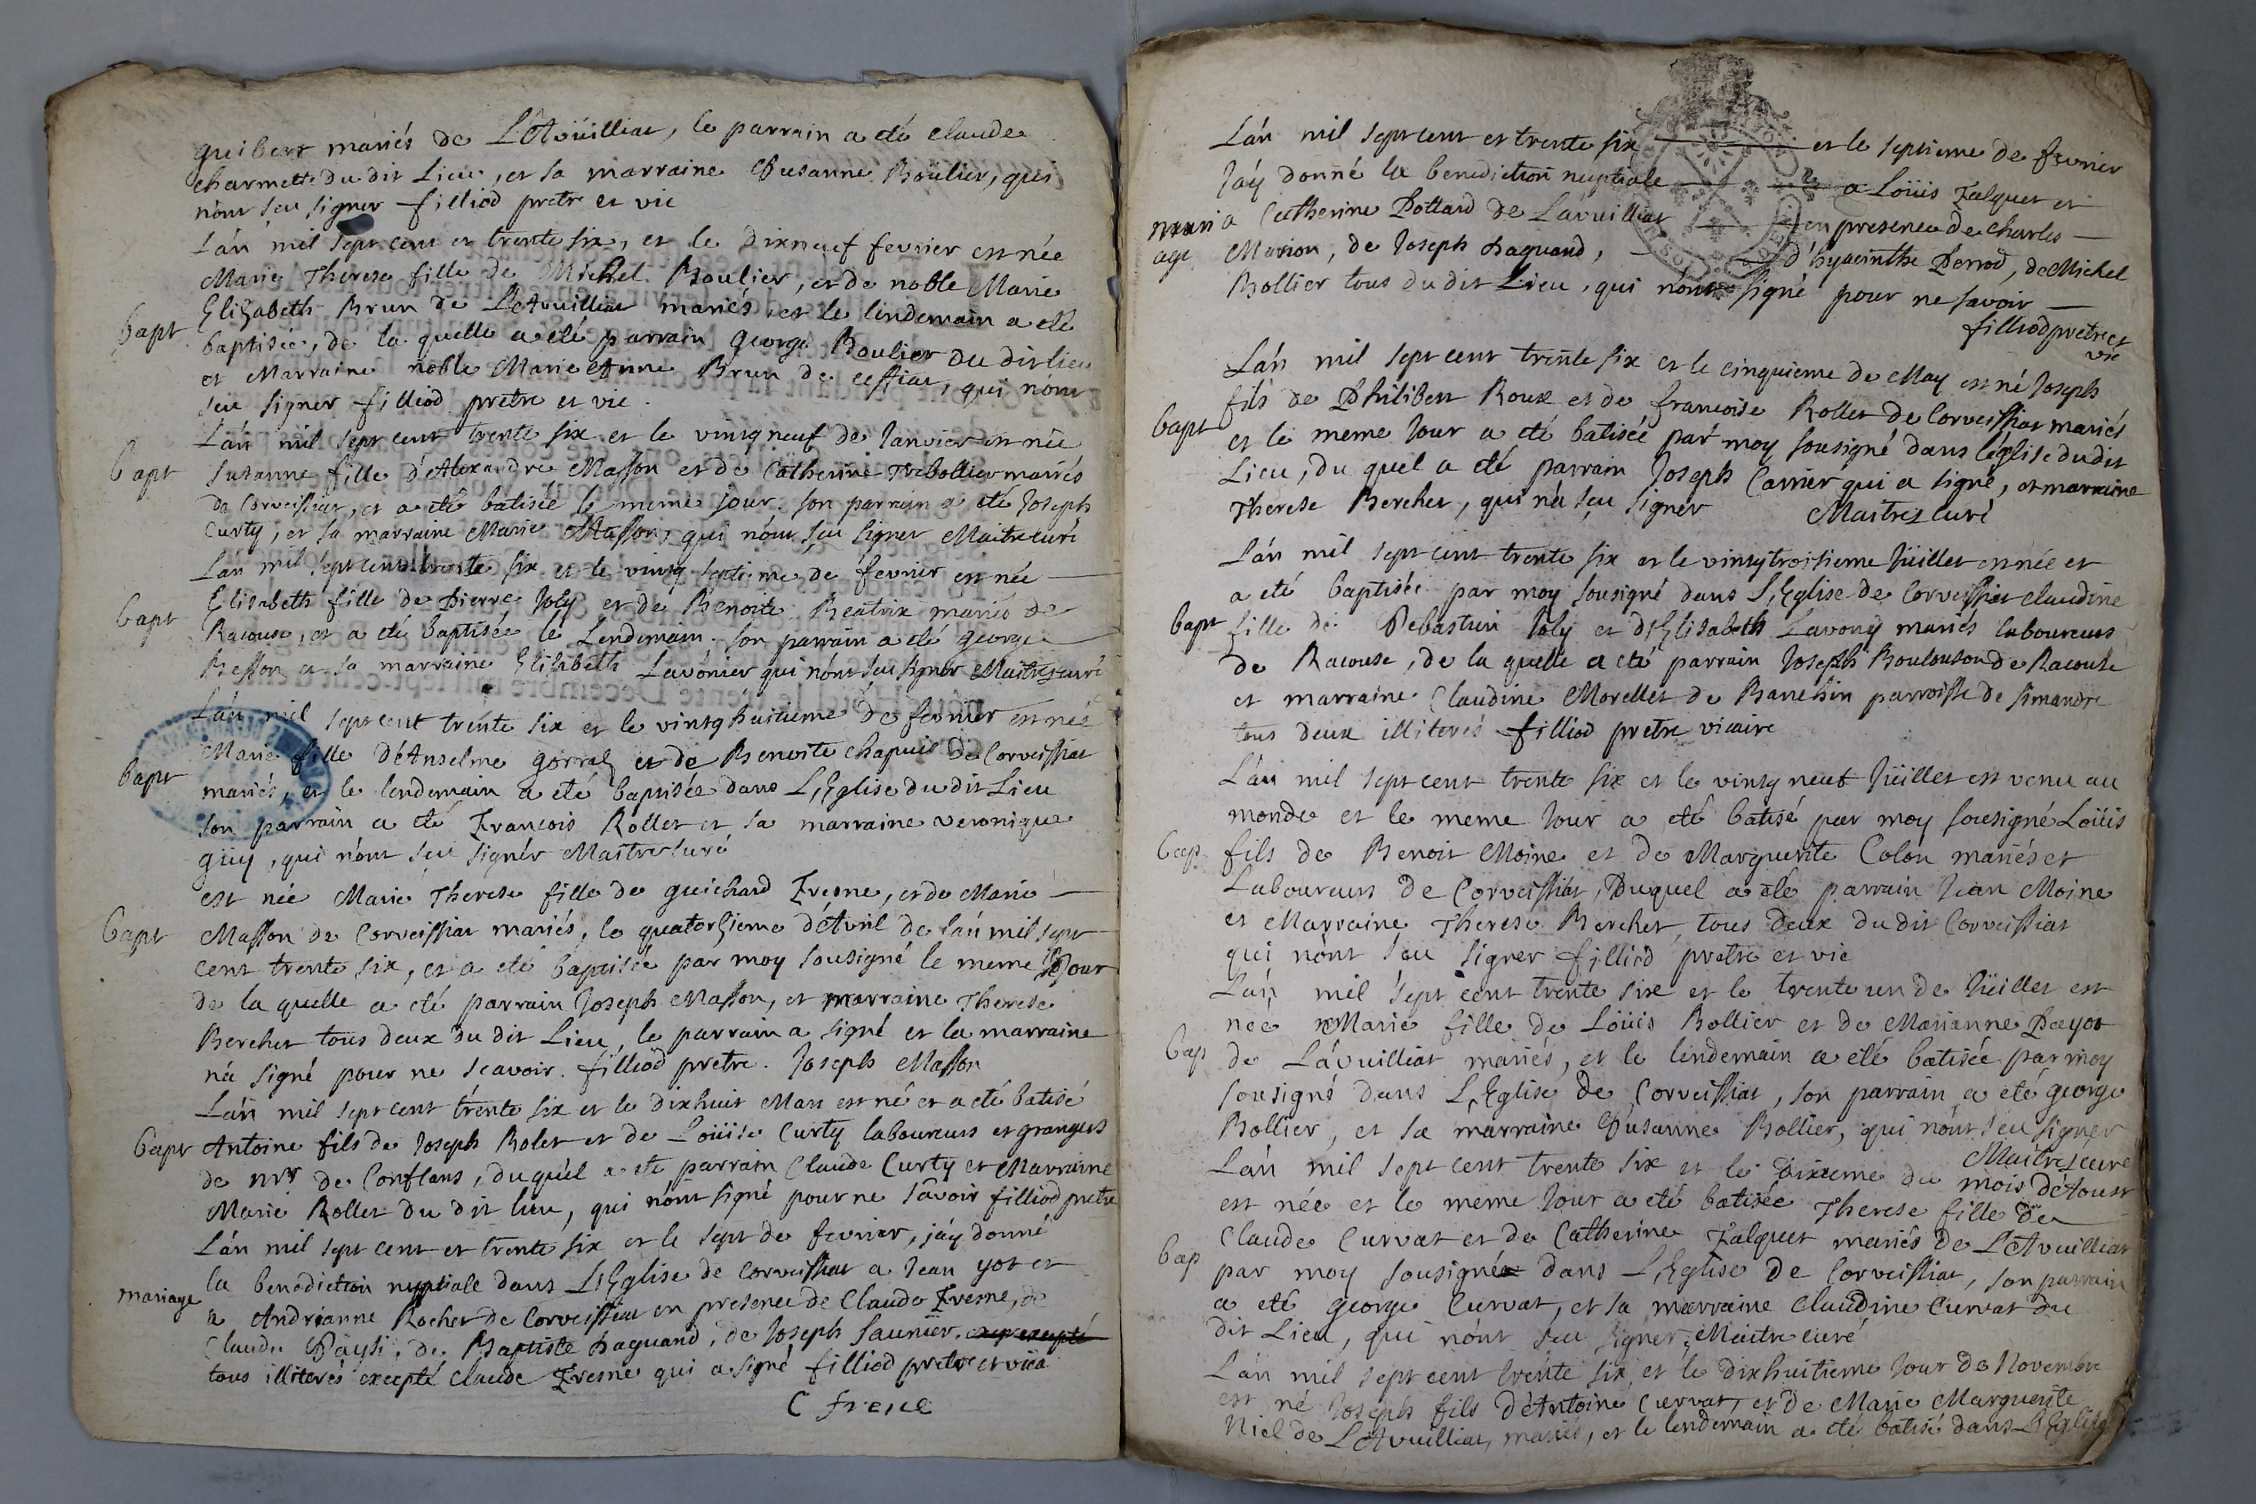 guibert mariés de L'Avüilliat, le parrain a eté claude
charmette du dit Lieu, et sa marraine Susanne Boülier, qui
nónt sçu signer filliod pretre et vic
Lán mil sept cent et trente six, et le dixneuf fevrier est née
Marie Therese fille de Michel Boulier, et de noble Marie
Elizabeth Brun de L'Avuilliat mariés, et le lendemain a eté
bapt
baptisée, de la quelle a eté parrain George Boulier du dit lieu
et Marraine noble Marie Anne Brun de ceffiat, qui nónt
sçu signer filliod pretre et vic.
Lán mil sept cent trente six et le vintg neuf de Janvier est née
bapt
Susanne fille d'Alexandre Masson et de Catherine Trebollier mariés
de Corveissiat, et a eté batisée le meme jour. son parrain a eté Joseph
Curty, et sa marraine Marie Masson, qui nónt sçu signer Maitre curé
Lán mil sept cent trente six et le vintg septieme de fevrier est née
bapt
Elisabeth fille de Pierre Joly et de Benoite Beatrix mariés de
Racouse, et a eté baptisée le Lendemain. son parrain a eté george
Besson et sa marraine Elisabeth Lavonier qui nónt sçu signer Maitre curé
Lán mil sept cent trente six et le vintg huitieme de fevrier est née
Marie fille d'Anselme gorraz et de Benoite chapuis de Corveissiat
bapt
mariés, et le lendemain a eté baptisée dans L'Eglise du dit Lieu
son parrain a eté François Rollet et sa marraine veronique
güy, qui nónt sçu signér Maitre curé
est née Marie Therese fille de guichard Fresne, et de Marie
bapt
Masson de Corveissiat mariés, le quatorzieme d'Avril de lán mil sept
cent trente six, et a eté baptisée par moy sousigné le meme Jour
de la quelle a eté parrain Joseph Masson, et marraine Therese
Berchet tous deux du dit Lieu, le parrain a signé et la marraine
ná signé pour ne sçavoir. filliod pretre. Joseph Masson
Lán mil sept cent trente six et le dixhuit Mars est né et a eté batisé
bapt
Antoine fils de Joseph Rolet et de Loüise Curty laboureurs et grangers
de mr de Conflans, duquél a eté parrain Claude Curty et Marraine
Marie Rollet du dit lieu, qui nónt signé pour ne sávoir filliod pretre
Lán mil sept cent et trente six et le sept de fevrier, jáy donné
la benediction nuptiale dans L'Eglise de Corveissiat a Jean yot et
mariage
a Andrianne Rochet de Corveissiat en presence de Claude Fresne, de
Claude Päysi, de Baptiste Daguand, de Joseph Saunier.
tous illiterés excepté Claude Fresne qui a signé filliod pretre et vica
C frene
Lán mil sept cent et trente six et le septieme de fevrier
Jáy donné la benediction nuptiale a Loüis Falquet et
mariage
a Catherine Pottard de Lávuilliat en presence de charles
Marion, de Joseph Daguand, d'hyacinthe Perrod, de Michel
Bollier tous du dit Lieu, qui nónt signé pour ne savoir
filliod pretre et
vic
Lán mil sept cent trente six et le cinquieme de May est né Joseph
fils de Philibert Roux et de francoise Rollet de Corveissiat mariés
bapt
et le meme Jour a eté batisée par moy sousigné dans léglise du dit
Lieu, du quel a eté parrain Joseph Carrier qui a signé, et marraine
Therese Berchet, qui ná sçu signér Maitre curé
Lán mil sept cent trente six et le vintg troisieme Jüillet est née et
a eté baptisée par moy sousigné dans L'Eglise de Corveissiat claudine
bapt
fille de Sebastien Joly et d'Elisabeth Lavony mariés laboureurs
de Racouse, de la quelle a eté parrain Joseph Boulouson de Racouse
et marraine Claudine Morellet de Banchin parroisse de simandre
tous deux illiterés filliod pretre vicaire
Lán mil sept cent trente six et le vintg neuf Jüillet est venu au
monde et le meme Jour a eté batisé par moy sousigné Loüis
bap
fils de Benoit Moine et de Marguerite Colon mariés et
Laboureurs de Corveissiat, Duquel a eté parrain Jean Moine
et Marraine Therese Berchet, tous deux du dit Corveissiat
qui nónt sçu signer filliod pretre et vic
Lán mil sept cent trente six et le trente un de Jüillet est
née Marie fille de Loüis Bollier et de Marianne Payot
bap
de Lávuilliat mariés, et le lendemain a eté batisée par moy
sousigné dans L'Eglise de Corveissiat, son parrain a eté george
Bollier, et sa marraine Susanne Bollier, qui nónt sçu signer
Maitre curé
Lán mil sept cent trente six et le dixieme du mois dáoust
est née et le meme Jour a eté batisée Therese fille de
Claude Curvat et de Catherine Falquet mariés de L'Avuilliat
bap
par moy sousigné dans L'Eglise de Corveissiat, son parrain
a eté george Curvat, et sa marraine Claudine Curvat du
dit Lieu, qui nónt sçu signer. Maitre curé
Lán mil sept cent trente six, et le dixhuitieme Jour de Novembre
est né Joseph fils d'Antoine Curvat, et de Marie Marguerite
Niel de L'Avuilliat, mariés, et le lendemain a eté batisé dans L'Eglise